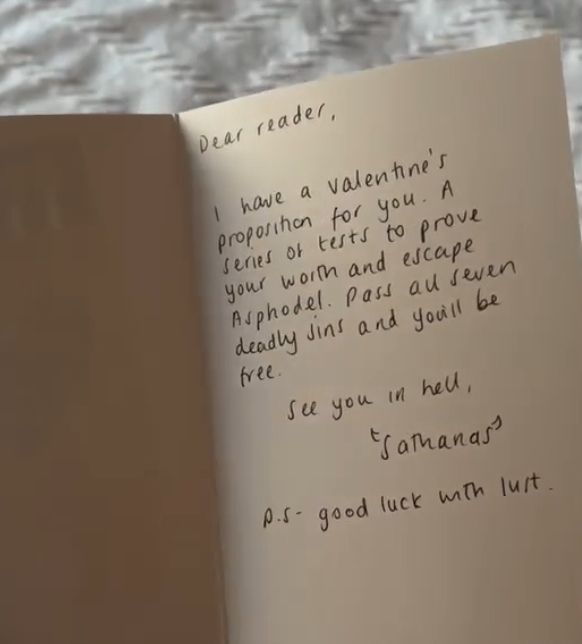 Dear reader,
I have a valentine's
proposition for you. A
series of tests to prove
your worth and escape
Asphodel. Pass all seven
deadly sins and you'll be
free.
See you in hell,
"Sathanas"
P.S- good luck with lust.